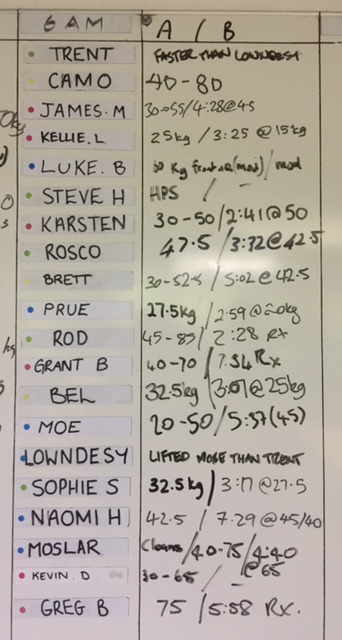 6 AM A / B
TRENT FASTER THAN LOWNDESY
CAMO 40-80
JAMES.M 30-55/4:28@45
KELLIE.L 25kg / 3:25 @ 15kg
LUKE. B Kg / mod
STEVE H HPS / -
KARSTEN 30-50/2:41@50
ROSCO 47.5 / 3:32@42.5
BRETT 30-52.5 / 5:02@42.5
PRUE 27.5kg / 2:59@20kg
ROD 45-85/ 2:28 Rx
GRANT B 40-70 / 7.34 Rx
BEL 32.5kg / 3:01@25kg
MOE 20-50/5:37(45)
LOWNDESY LIFTED MORE THAN TRENT
SOPHIE S 32.5kg / 3:17 @27.5
NAOMI H 42.5 / 7.29@45/40
MOSLAR Cleans/40-75/4:40
KEVIN. D 30-65/ - @65
GREG. B 75 / 5:58 Rx.